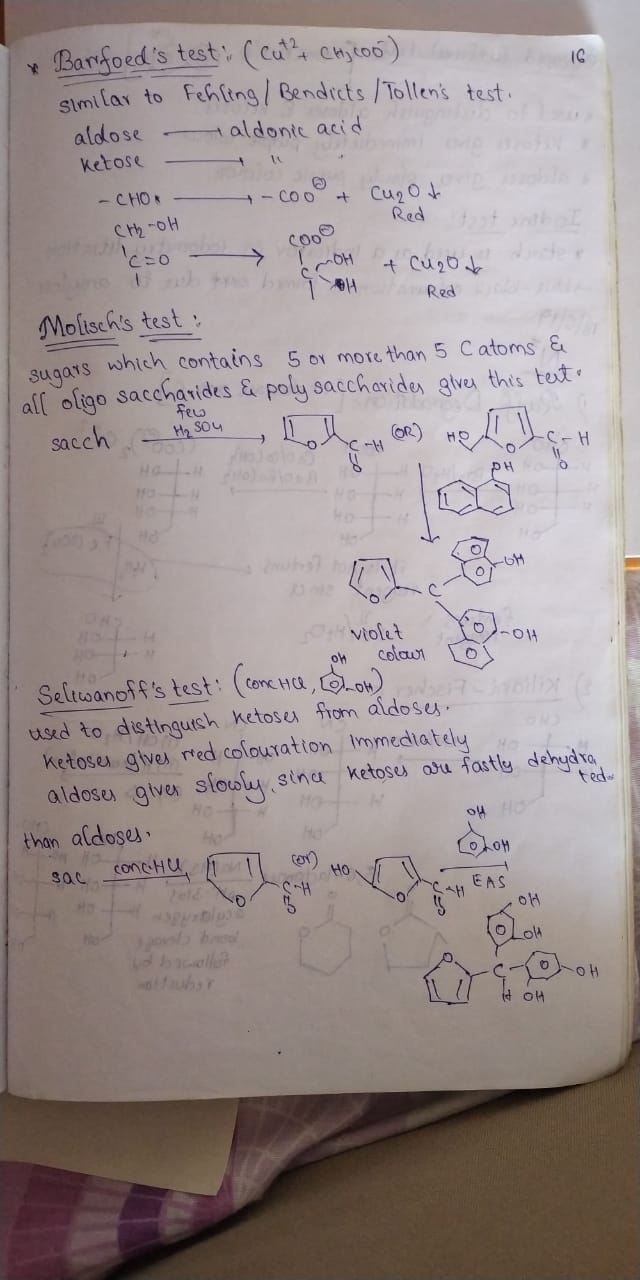 * Barfoed's test: (Cu+2, CH3COO-) 16
Similar to Fehling / Bendicts / Tollen's test.
aldose → aldonic acid
ketose → " "
- CHO → - COO⊖ + Cu2O ↓
Red
CH2-OH
C=O → COO⊖ C OH OH + Cu2O ↓
Red
Molisch's test :
sugars which contains 5 or more than 5 C atoms &
all oligo saccharides & poly saccharides gives this test.
sacch few H2SO4 → O C-H O (OR) HO O C-H O
OH
O C OH
OH
violet
colour
Seliwanoff's test: (conc HCl, OH OH)
used to distinguish ketoses from aldoses.
ketoses gives red colouration Immediately
aldoses gives slowly, since ketoses are fastly dehydra
ted
than aldoses.
sac conc.HCl O C-H O (or) HO O C-H O OH OH EAS
OH
OH
O C OH
H OH